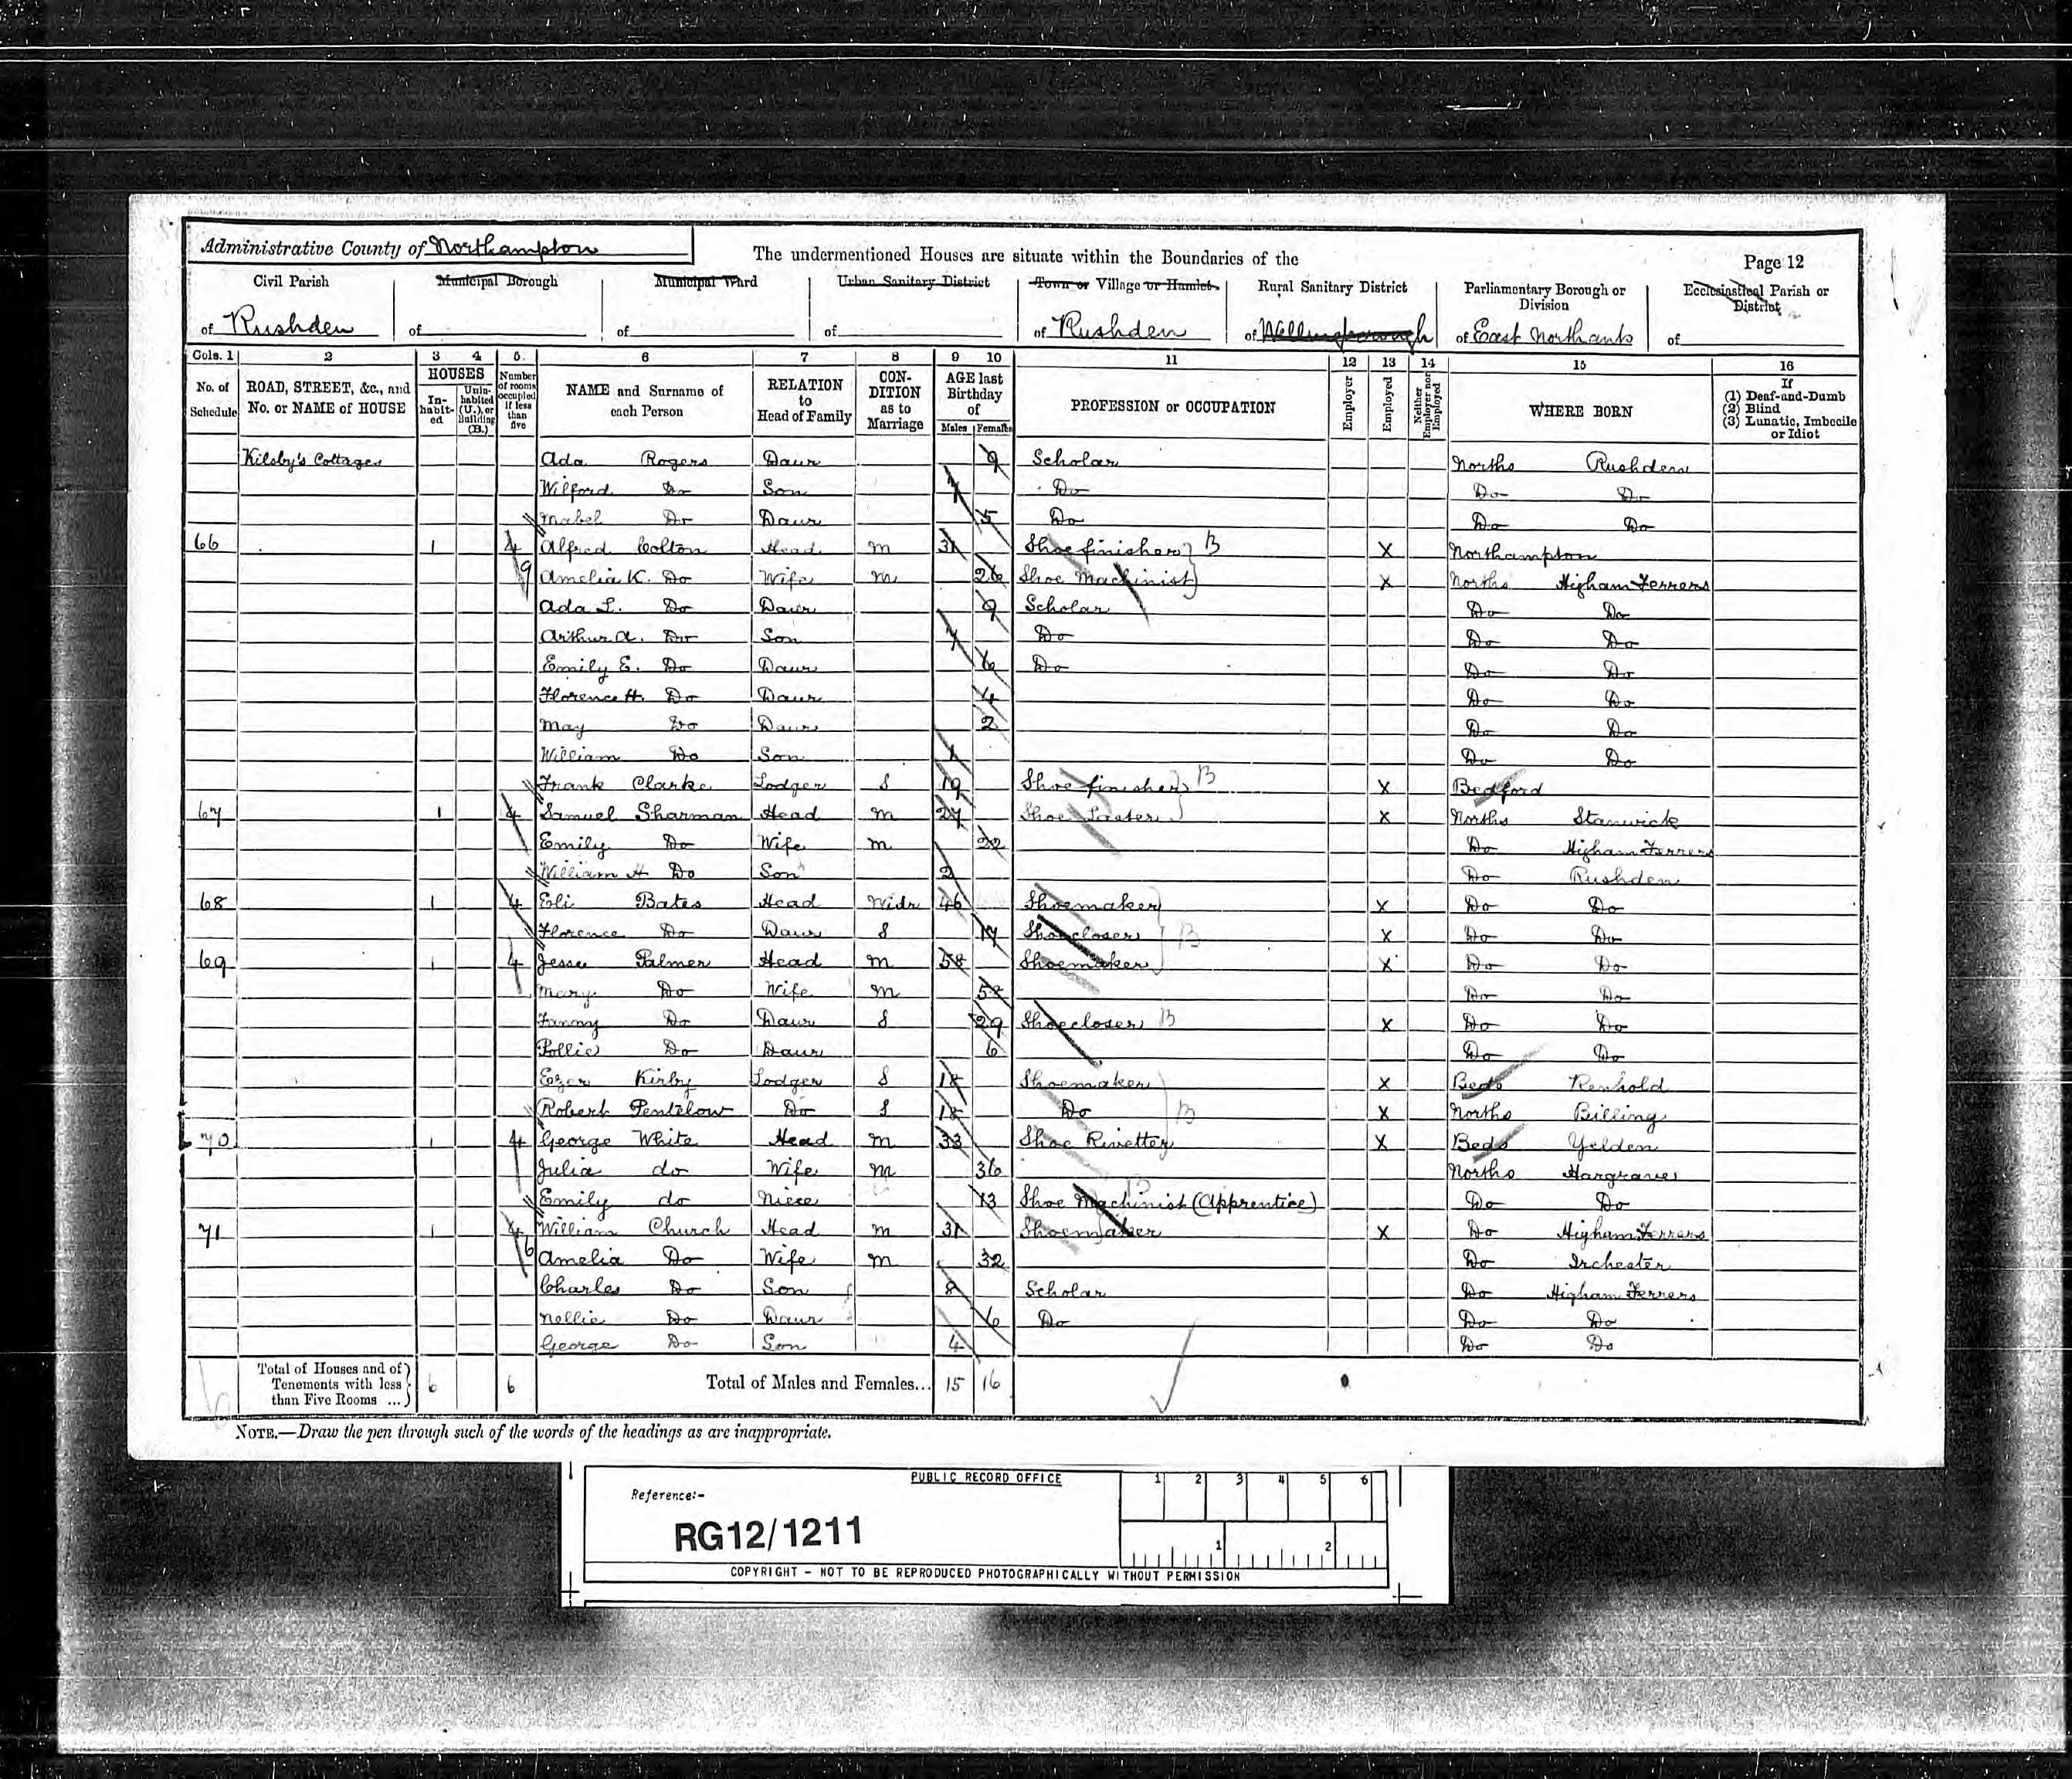 Administrative County of Northampton
The undermentioned Houses are situate within the Boundaries of the
Page 12
Civil Parish
of Rushden
Municipal Borough
of
Municipal Ward
of
Urban Sanitary District
of
Town or Village or Hamlet
of Rushden
Rural Sanitary District
of Wellingborough
Parliamentary Borough or Division
of East Northants
Ecclesiastical Parish or District
of
Cols. 1 2 3 4 5 6 7 8 9 10 11 12 13 14 15 16
No. of Schedule
ROAD, STREET, &c., and No. or NAME of HOUSE
HOUSES
In-habit-ed
Unin-habited (U.), or Building (B.)
Number of rooms occupied if less than five
NAME and Surname of each Person
RELATION to Head of Family
CON-DITION as to Marriage
AGE last Birthday of
Males Females
PROFESSION or OCCUPATION
Employer
Employed
Neither Employer nor Employed
WHERE BORN
If
(1) Deaf-and-Dumb
(2) Blind
(3) Lunatic, Imbecile or Idiot
Kilsby's Cottages Ada Rogers Daur 9 Scholar Norths Rushden
Wilford Do Son 7 Do Do Do
Mabel Do Daur 5 Do Do Do
66 1 4 Alfred Colton Head M 31 Shoe finisher B X Northampton
9 Amelia K. Do Wife M 26 Shoe Machinist X Norths Higham Ferrers
Ada L. Do Daur 9 Scholar Do Do
Arthur A. Do Son 7 Do Do Do
Emily E. Do Daur 6 Do Do Do
Florence H. Do Daur 4 Do Do
May Do Daur 2 Do Do
William Do Son 1 Do Do
Frank Clarke Lodger S 19 Shoe finisher B X Bedford
67 1 4 Samuel Sharman Head M 27 Shoe Laster X Norths Stanwick
Emily Do Wife M 22 Do Higham Ferrers
William H Do Son 2 Do Rushden
68 1 4 Eli Bates Head Widr 46 Shoemaker X Do Do
Florence Do Daur S 17 Shoecloser B X Do Do
69 1 4 Jesse Palmer Head M 58 Shoemaker X Do Do
Mary Do Wife M 58 Do Do
Fanny Do Daur S 29 Shoecloser B X Do Do
Pollie Do Daur 6 Do Do
Ezer Kirby Lodger S 18 Shoemaker X Beds Renhold
Robert Pentelow Do S 18 Do B X Norths Billing
70 1 4 George White Head M 33 Shoe Rivetter X Beds Yelden
Julia do Wife M 36 Norths Hargrave
Emily do Niece 13 Shoe Machinist (Apprentice) B Do Do
71 1 4 William Church Head M 31 Shoemaker X Do Higham Ferrers
6 Amelia Do Wife M 32 Do Irchester
Charles Do Son 8 Scholar Do Higham Ferrers
Nellie Do Daur 6 Do Do Do
George Do Son 4 Do Do
Total of Houses and of Tenements with less than Five Rooms ... 6 6 Total of Males and Females... 15 16
NOTE.—Draw the pen through such of the words of the headings as are inappropriate.
PUBLIC RECORD OFFICE
Reference:-
RG12/1211
1 2 3 4 5 6
1 2
COPYRIGHT - NOT TO BE REPRODUCED PHOTOGRAPHICALLY WITHOUT PERMISSION